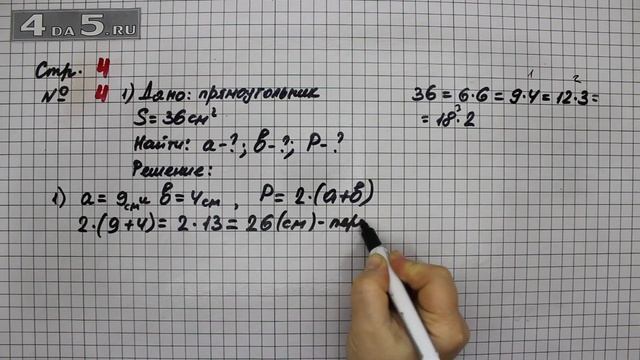 4DA5.RU
Стр. 4
№ 4 1) Дано: прямоугольник
S = 36 см²
Найти: a - ?; b - ?; P - ?
Решение:
1) a = 9 см и b = 4 см, P = 2·(a+b)
2·(9+4) = 2·13 = 26 (см) - пер
1 2
36 = 6·6 = 9·4 = 12·3 =
3
= 18·2